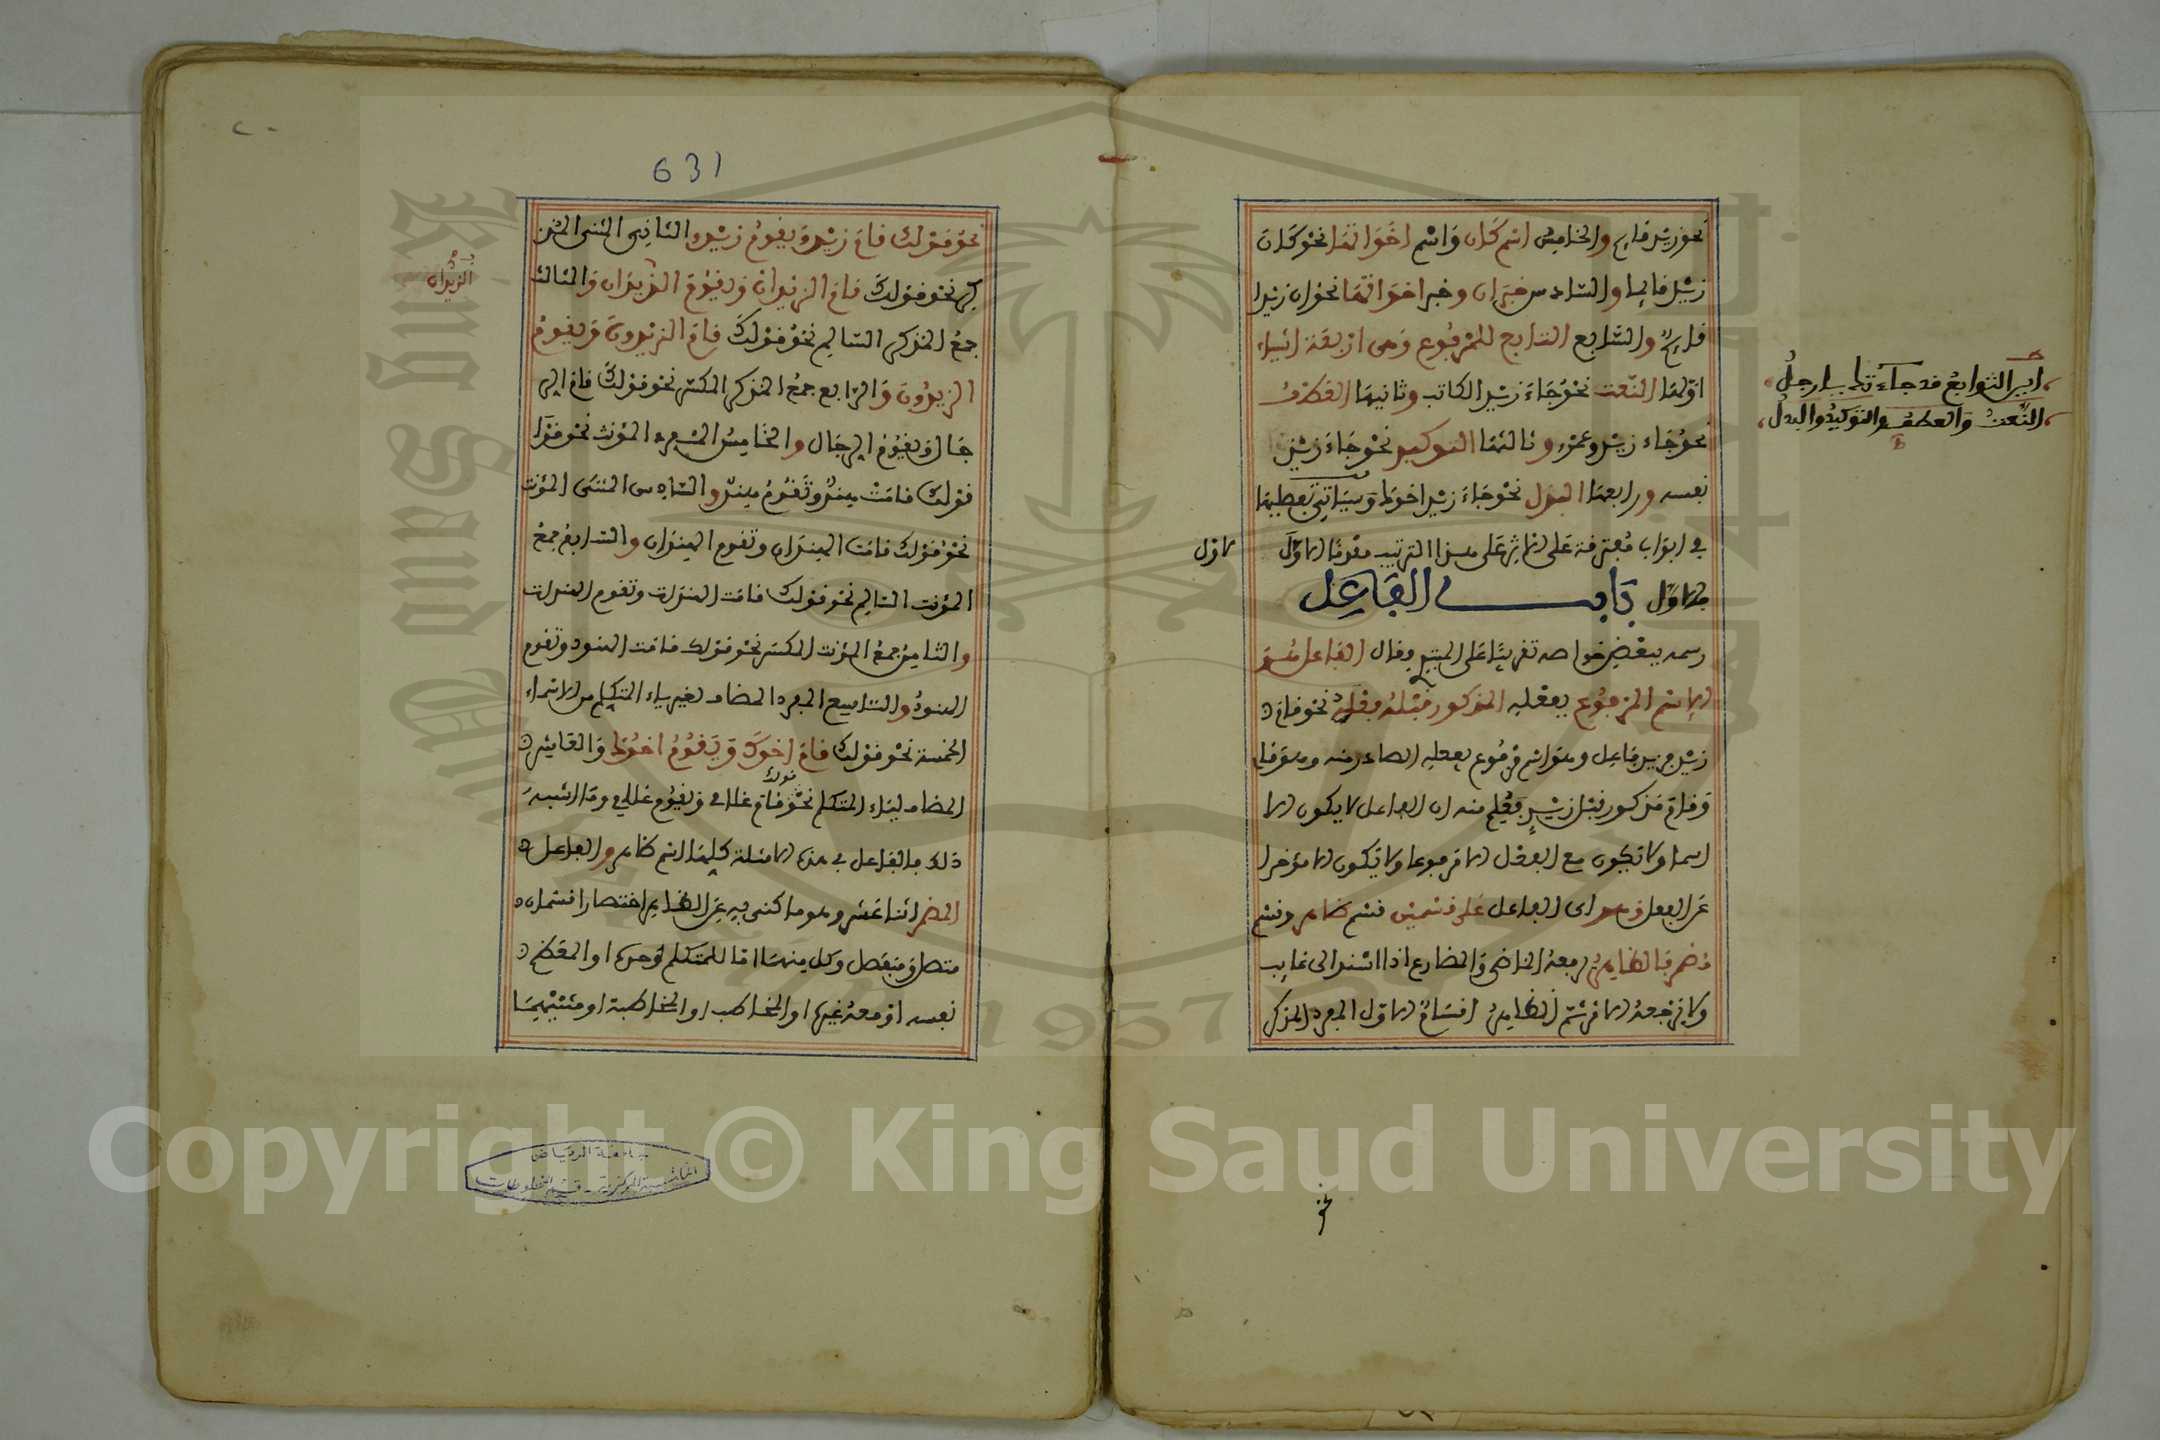 نحو زيد قايم والخامس اسم كان واسم اخواتها نحو كان
زيد قايما والسادس خبر ان وخبر اخواتها نحو ان زيدا
قايم والسابع التابع للمرفوع وهي اربعة اشياء
اولها النعت نحو جاء زيد الكاتب وثانيها العطف
نحو جاء زيد وعمرو وثالثها التوكيد نحو جاء زيد
نفسه ورابعها البدل نحو جاء زيد اخوك وسياتي تفصيلها
في ابواب متفرقة على هذا الترتيب مقدما الاول
الاول
فالاول باب الفاعل
رسمه ببعض خواصه تقريبا على المبتدي وقال الفاعل هو
الاسم المرفوع بفعله المذكور قبله فعله نحو قام
زيد فزيد فاعل وهو اسم مرفوع بفعله الصادر منه وهو قام
وقام مذكور قبل زيد فعلم منه ان الفاعل لا يكون الا
اسما ولا يكون مع الفعل الا مرفوعا ولا يكون الا مؤخرا
عن الفعل وهو اى الفاعل على قسمين قسم ظاهر وقسم
مضمر فالظاهر يرفعه الماضي والمضارع اذا اسند الى غايب
ولا يرفعه الامر ثم الظاهر اقسام الاول المفرد المذكر
اين التوابع قد جاء
النعت والعطف والتوكيد والبدل
631
نحو قولك قام زيد ويقوم زيد والثاني المثنى المذ
كر نحو قولك قام الزيدان ويقوم الزيدان والثالث
الزيدان
جمع المذكر السالم نحو قولك قام الزيدون ويقوم
الزيدون والرابع جمع المذكر المكسر نحو قولك قام الر
جال ويقوم الرجال والخامس المفرد المؤنث نحو
قولك قامت هند وتقوم هند والسادس المثنى المؤنث
نحو قولك قامت الهندان وتقوم الهندان والسابع جمع
المؤنث السالم نحو قولك قامت الهندات وتقوم الهندات
والثامن جمع المؤنث المكسر نحو قولك قامت الهنود وتقوم
الهنود والتاسع المفرد المضاف لغير ياء المتكلم من الاسماء
الخمسة نحو قولك قام اخوك ويقوم اخوك والعاشر
قولك
المضاف لياء المتكلم نحو قام غلامي ويقوم غلامي وما اشبه
ذلك فالفاعل في هذه الامثلة كلها اسم ظاهر والفاعل
المضمر اثنا عشر وهو ما كنى به عن الظاهر اختصارا قسمان
متصل ومنفصل وكل منهما اما للمتكلم وحده او المعظم
نفسه او معه غيره او المخاطب او المخاطبة او مثنيهما
جامعة الرياض
المكتبة المركزية - قسم المخطوطات
Copyright © King Saud University
1957